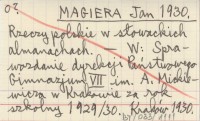 02
MAGIERA Jan 1930.
Rzeczy polskie w słowackich
almanachach. — W: Spra-
wozdanie dyrekcji Państwowego
Gimnazjum VII im. A. Mickie-
wicza w Krakowie za rok
szkolny 1929/30. Kraków 1930.